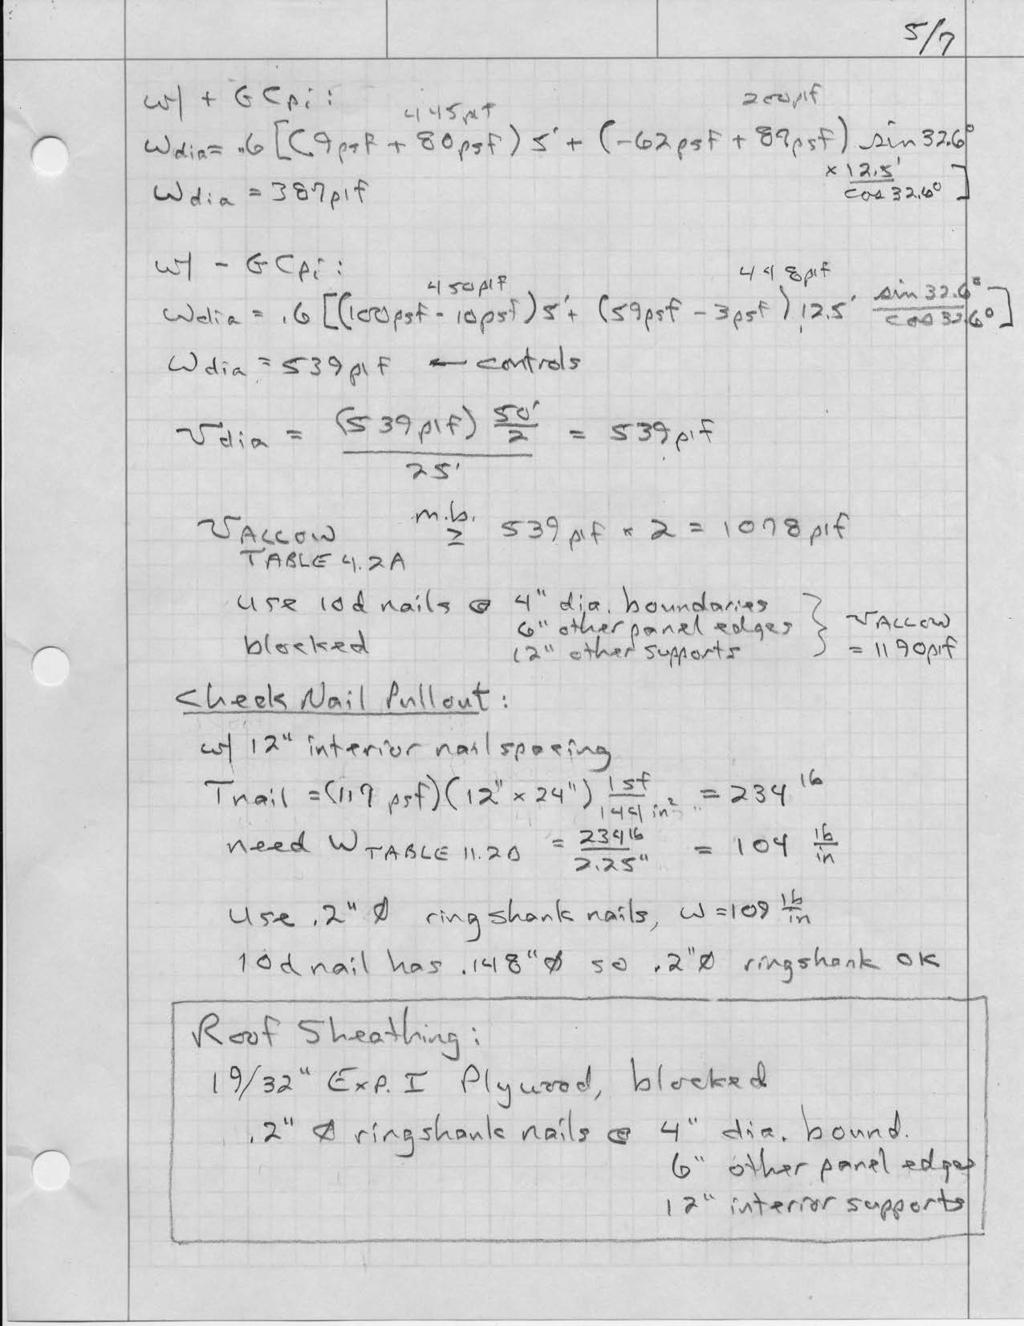 5/7
w/ + GCpi:
445plf 200plf
Wdia = .6 [(9psf + 80psf) 5' + (-62psf + 87psf) sin 32.6°
x 12.5' / cos 32.6° ]
Wdia = 387plf
w/ - GCpi:
450plf 448plf
Wdia = .6 [(100psf - 10psf) 5' + (59psf - 3psf) 12.5' sin 32.6° / cos 32.6° ]
Wdia = 539plf ← controls
Vdia = (539plf) 50'/2 / 25' = 539plf
VALLOW m.b. ≥ 539plf x 2 = 1078plf
TABLE 4.2A
use 10d nails @ 4" dia. boundaries
6" other panel edges } VALLOW
blocked 12" other supports = 1190plf
Check Nail Pullout:
w/ 12" interior nail spacing
Tnail = (117 psf)(12" x 24") 1sf / 144 in² = 234 lb
need W TABLE 11.2D = 234lb / 2.25" = 104 lb/in
use .2" Ø ring shank nails, w = 109 lb/in
10d nail has .148"Ø so .2"Ø ringshank OK
Roof Sheathing:
19/32" Exp. I Plywood, blocked
.2" Ø ringshank nails @ 4" dia. bound.
6" other panel edges
12" interior supports